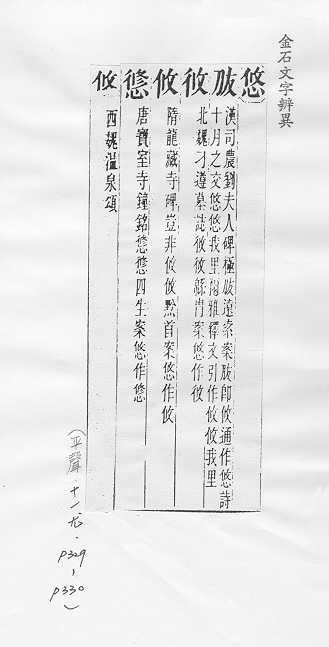 金石文字辨異
悠
漢司農劉夫人碑極遠索案卽攸通作悠詩
十月之交悠悠我里爾雅釋文引作攸攸我里
北魏刁遵墓誌緜胄案悠作
攸
隋龍藏寺碑豈非攸攸黔首案悠作攸
唐寶室寺鐘銘四生案悠作
攸
西魏溫泉頌
(平聲．十一尤．P329，P330)